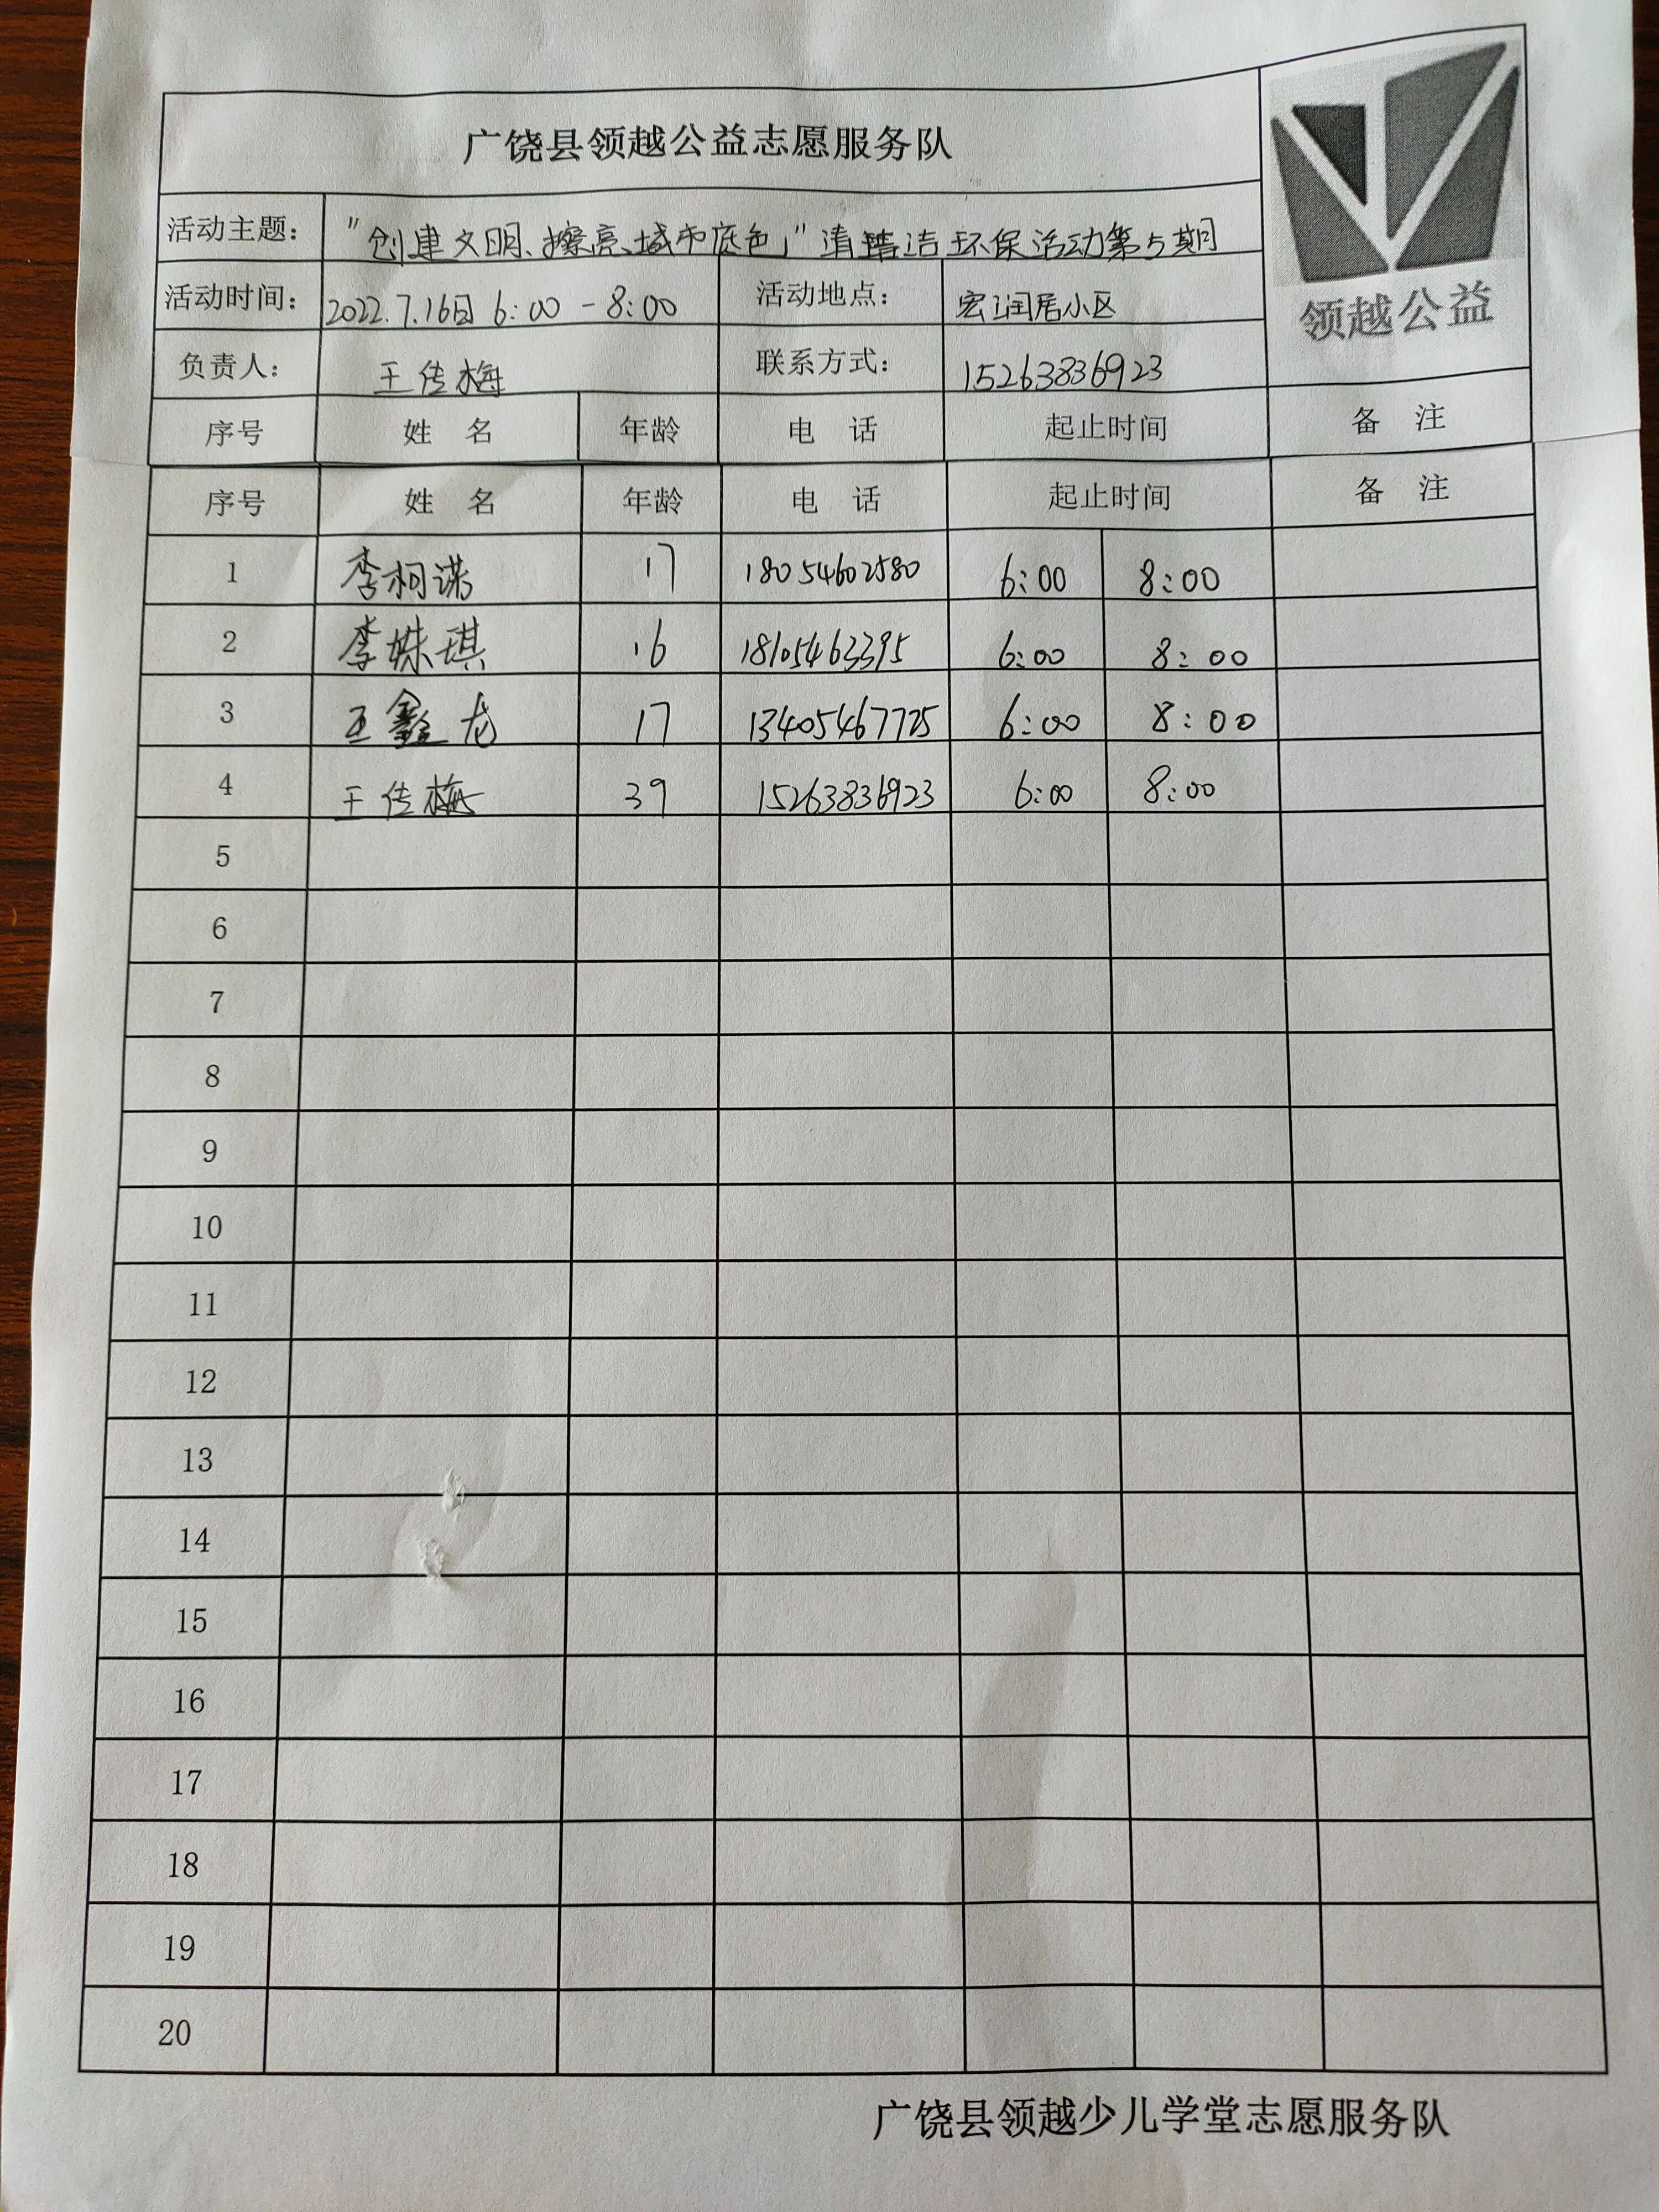 广饶县领越公益志愿服务队
活动主题： "创建文明、擦亮城市底色" 清洁环保活动第5期
领越公益
活动时间： 2022.7.16日 6:00 - 8:00 活动地点： 宏润居小区
负责人： 王传梅 联系方式： 15263836923
序号 姓 名 年龄 电 话 起止时间 备 注
序号 姓 名 年龄 电 话 起止时间 备 注
1 李柯诺 17 18054602580 6:00 8:00
2 李姝琪 16 18105463395 6:00 8:00
3 王鑫龙 17 13405467725 6:00 8:00
4 王传梅 39 15263836923 6:00 8:00
5
6
7
8
9
10
11
12
13
14
15
16
17
18
19
20
广饶县领越少儿学堂志愿服务队